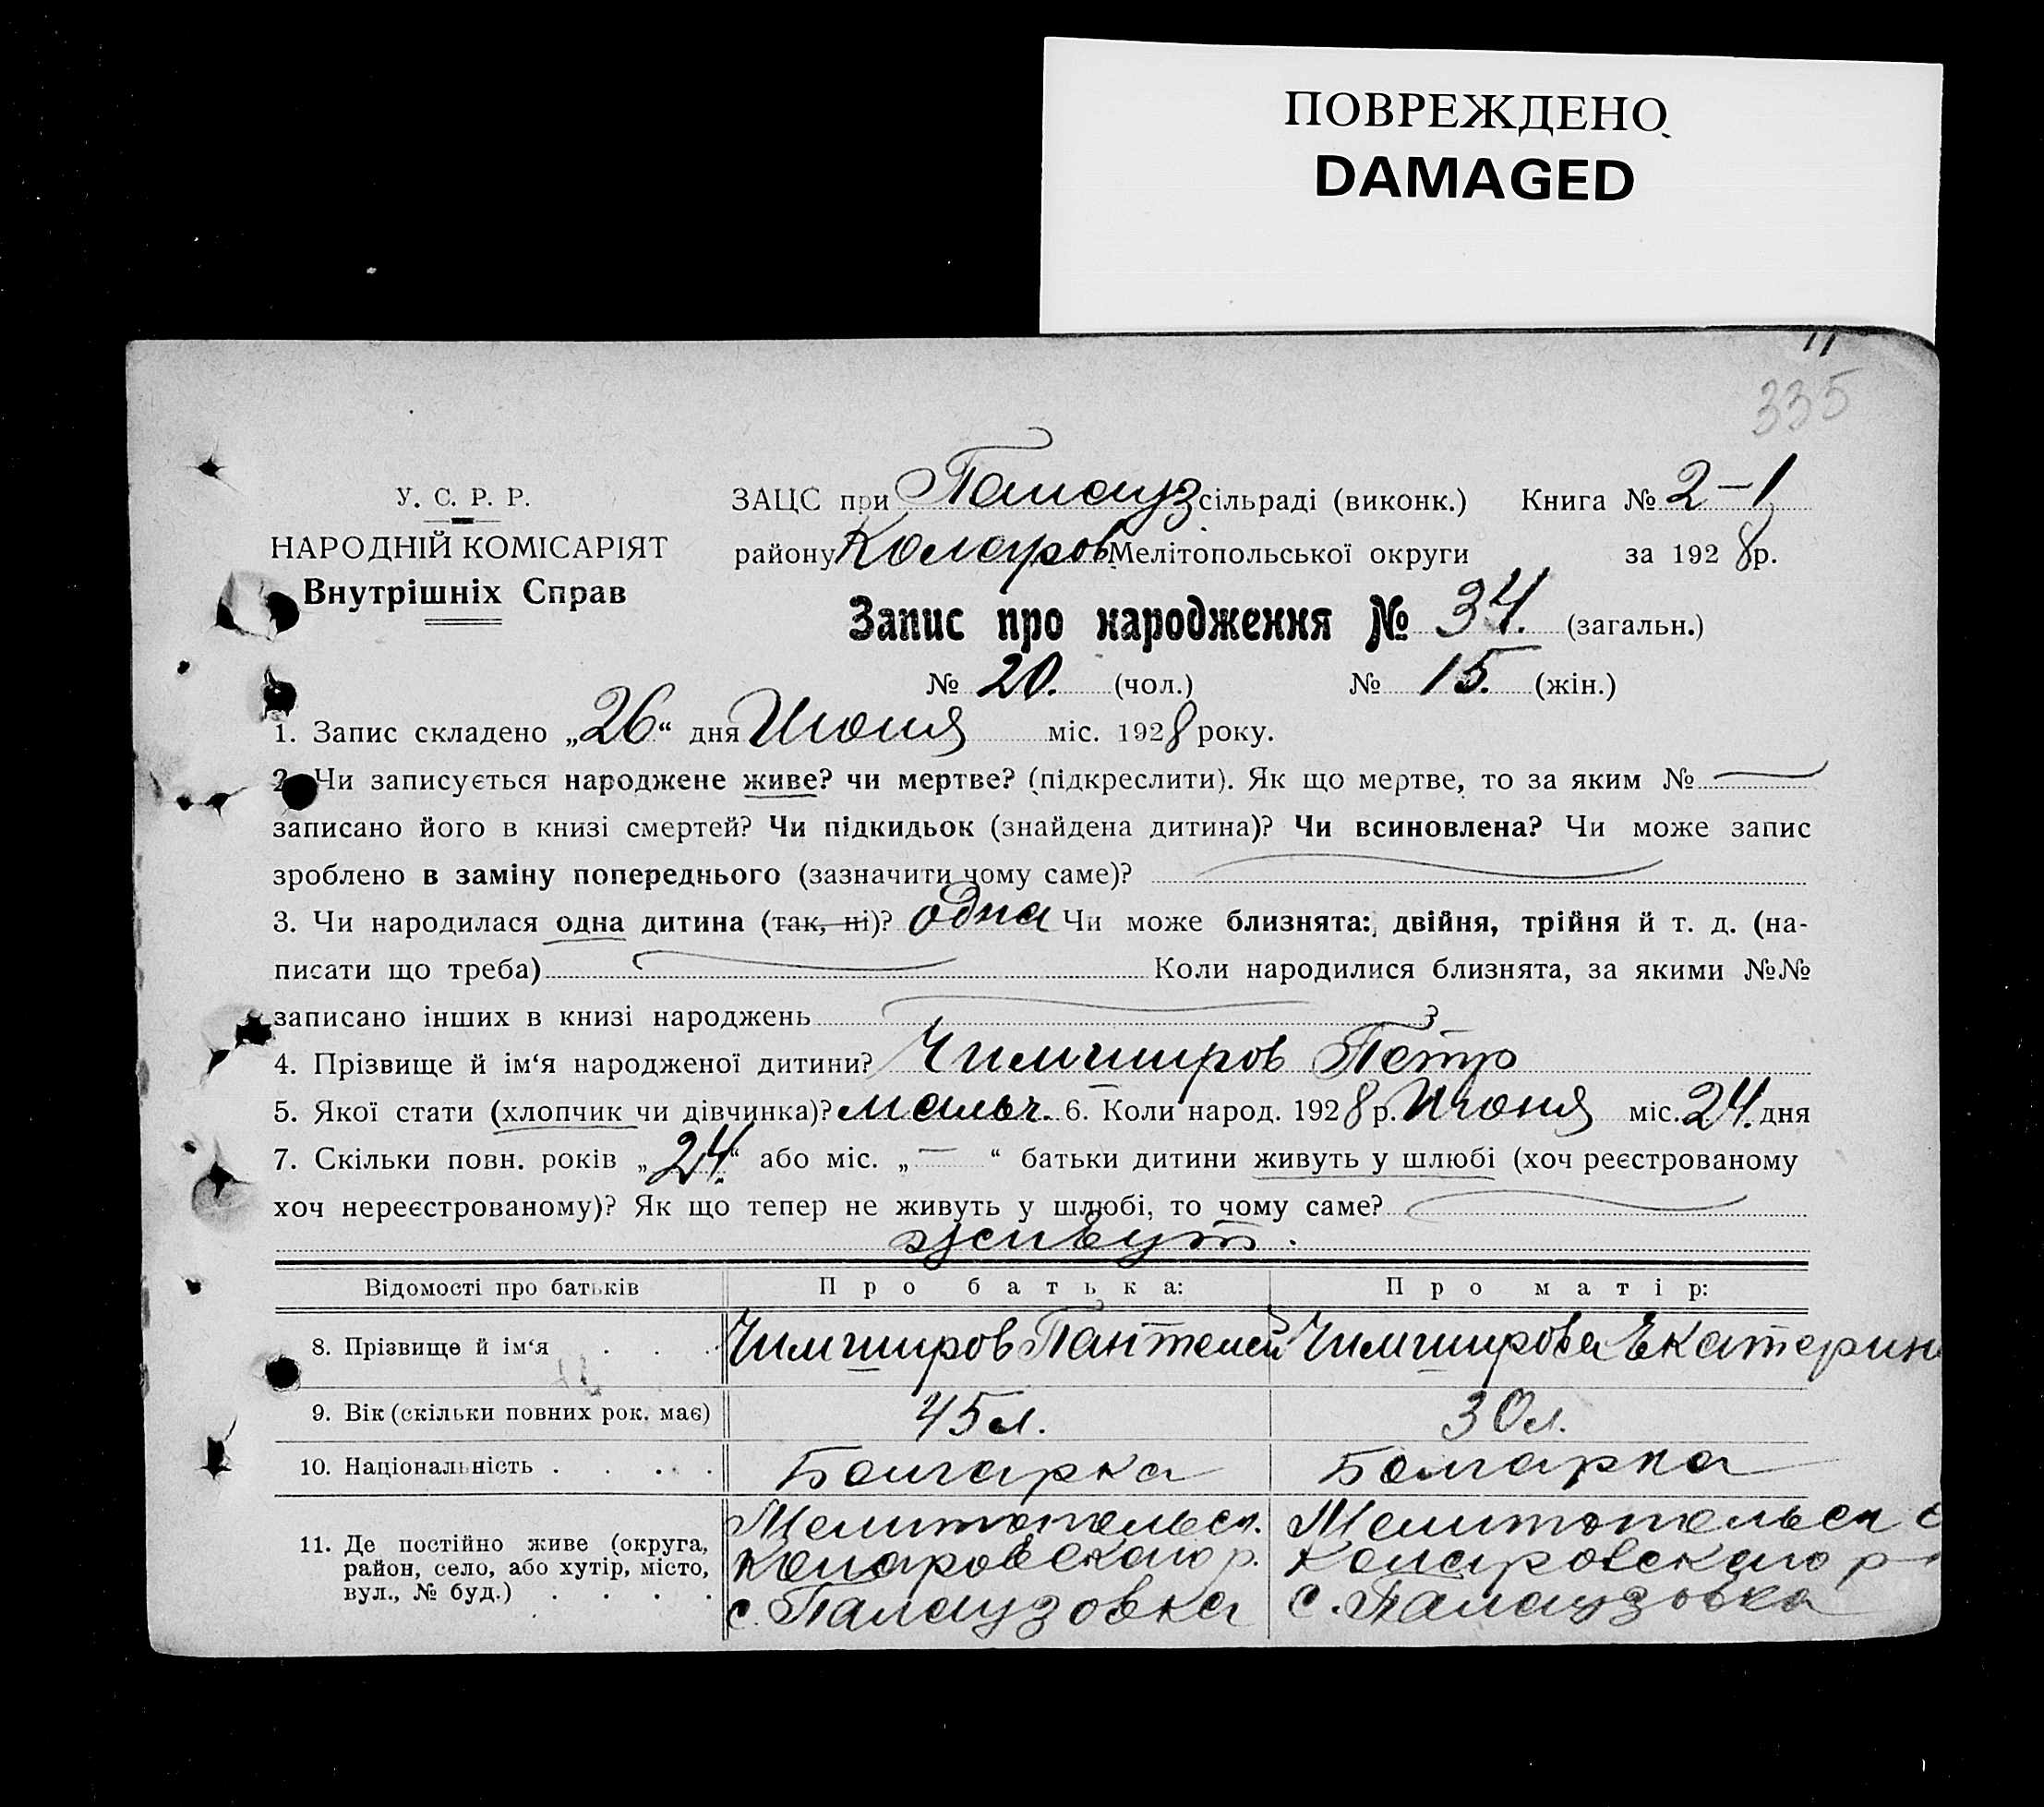 ПОВРЕЖДЕНО
DAMAGED
11
335
У. С. Р. Р.
НАРОДНІЙ КОМІСАРІЯТ
Внутрішніх Справ
ЗАЦС при Палауз сільраді (виконк.) Книга № 2-1
району Коларов Мелітопольської округи за 1928 р.
Запис про народження № 34. (загальн.)
№ 20. (чол.) № 15. (жін.)
1. Запис складено „26“ дня Июня міс. 1928 року.
2. Чи записується народжене живе? чи мертве? (підкреслити). Як що мертве, то за яким № —
записано його в книзі смертей? Чи підкидьок (знайдена дитина)? Чи всиновлена? Чи може запис
зроблено в заміну попереднього (зазначити чому саме)?
3. Чи народилася одна дитина (так, ні)? одна Чи може близнята: двійня, трійня й т. д. (на-
писати що треба) Коли народилися близнята, за якими №№
записано інших в книзі народжень ?
4. Прізвище й ім‘я народженої дитини? Чимчиров Петр
5. Якої стати (хлопчик чи дівчинка)? мальч. 6. Коли народ. 1928 р. Июня міс. 24. дня
7. Скільки повн. років „24.“ або міс. „—“ батьки дитини живуть у шлюбі (хоч реєстрованому
хоч нереєстрованому)? Як що тепер не живуть у шлюбі, то чому саме?
живут.
Відомості про батьків Про батька: Про матір:
8. Прізвище й ім‘я . . . Чимширов Пантелей Чимширова Екатерин
9. Вік (скільки повних рок. має) 45 л. 30 л.
10. Національність . . . . Болгарка Болгарка
11. Де постійно живе (округа, район, село, або хутір, місто, вул., № буд.) . . . .
Мелитопольск. Мелитопольск о
Коларовского р. Коларовского р-
с. Палаузовка с. Палаузовка